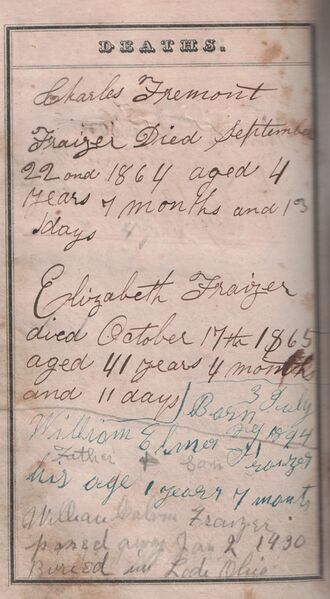 DEATHS.
Charles Fremont
Fraizer Died September
22 ond 1864 aged 4
years 7 months and 13
days
Elizabeth Fraizer
died October 17th 1865
aged 41 years 4 month
and 11 days
Born July
William Elmer Fraizer
Father & Earn
his age 1 years 7 months
William Calvin Fraizer
passed away Jan 2 1930
Buried in Lodi Ohio